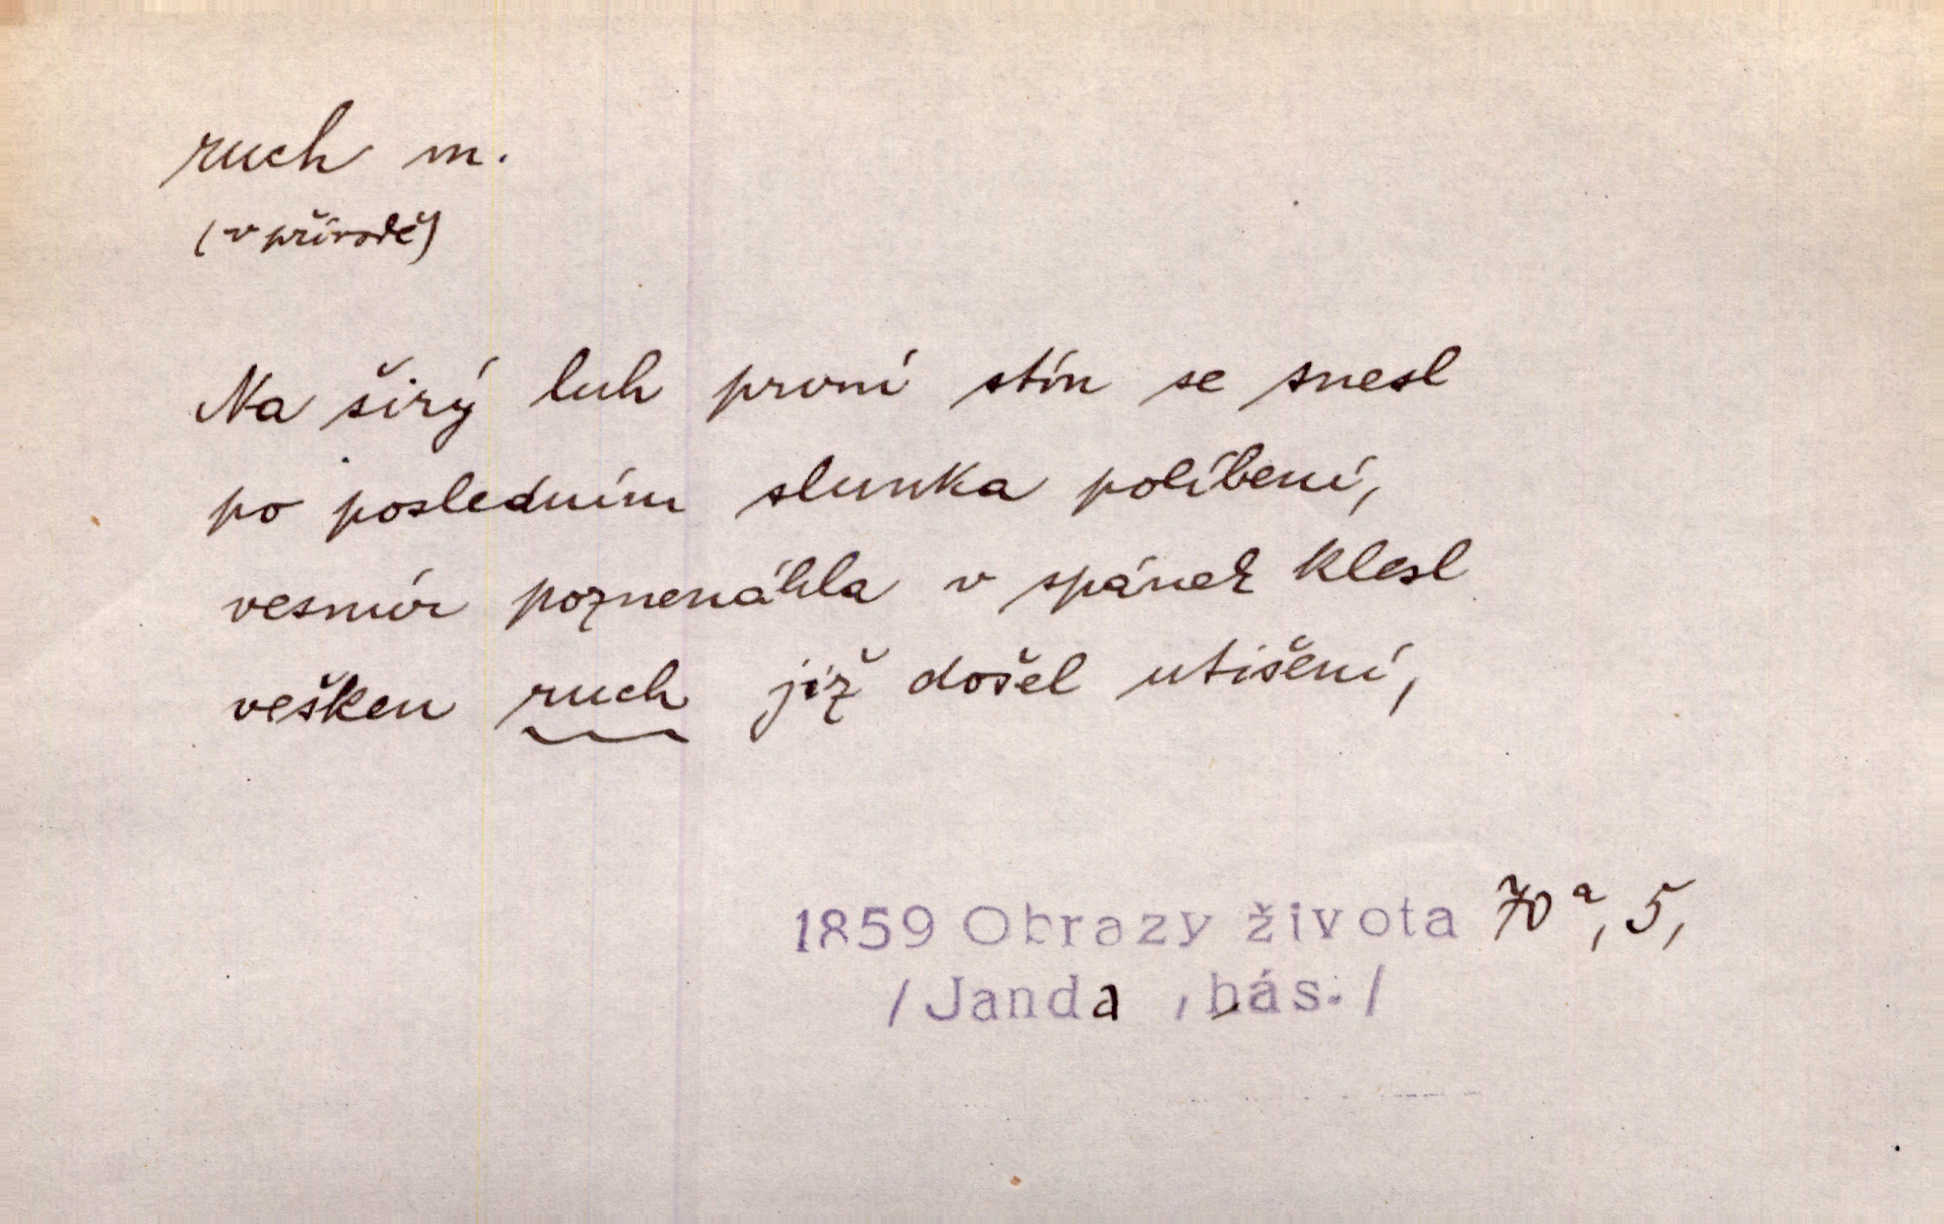 ruch m.
(v přírodě)
Na širý luh první stín se snesl
po posledním slunka políbení,
vesmír poznenáhla v spánek klesl
vešken ruch již došel utišení,
1859 Obrazy života 70a, 5,
/Janda , bás./